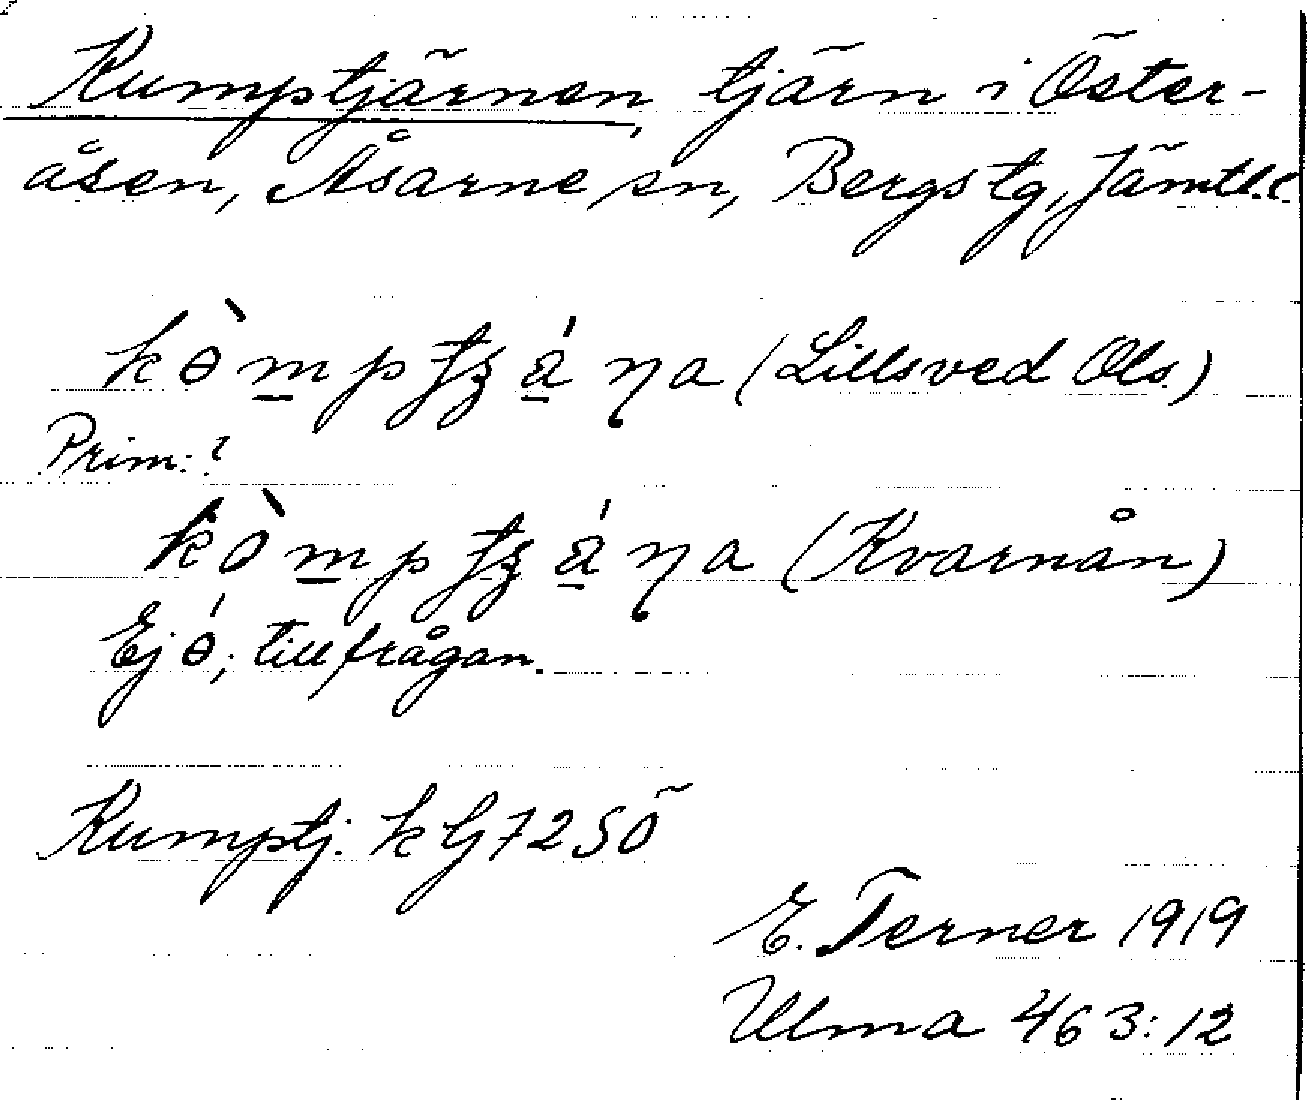 Kumptjärnen, tjärn i Öster-
åsen, Åsarne sn, Bergs tg, Jämtl.l.
(Lillsved Ols.)
Prim: ?
(Kvarnån)
Ej ɵ́; tillfrågan.
Kumptj. k Gj 72 SÖ
E. Terner 1919
Ulma 463:12